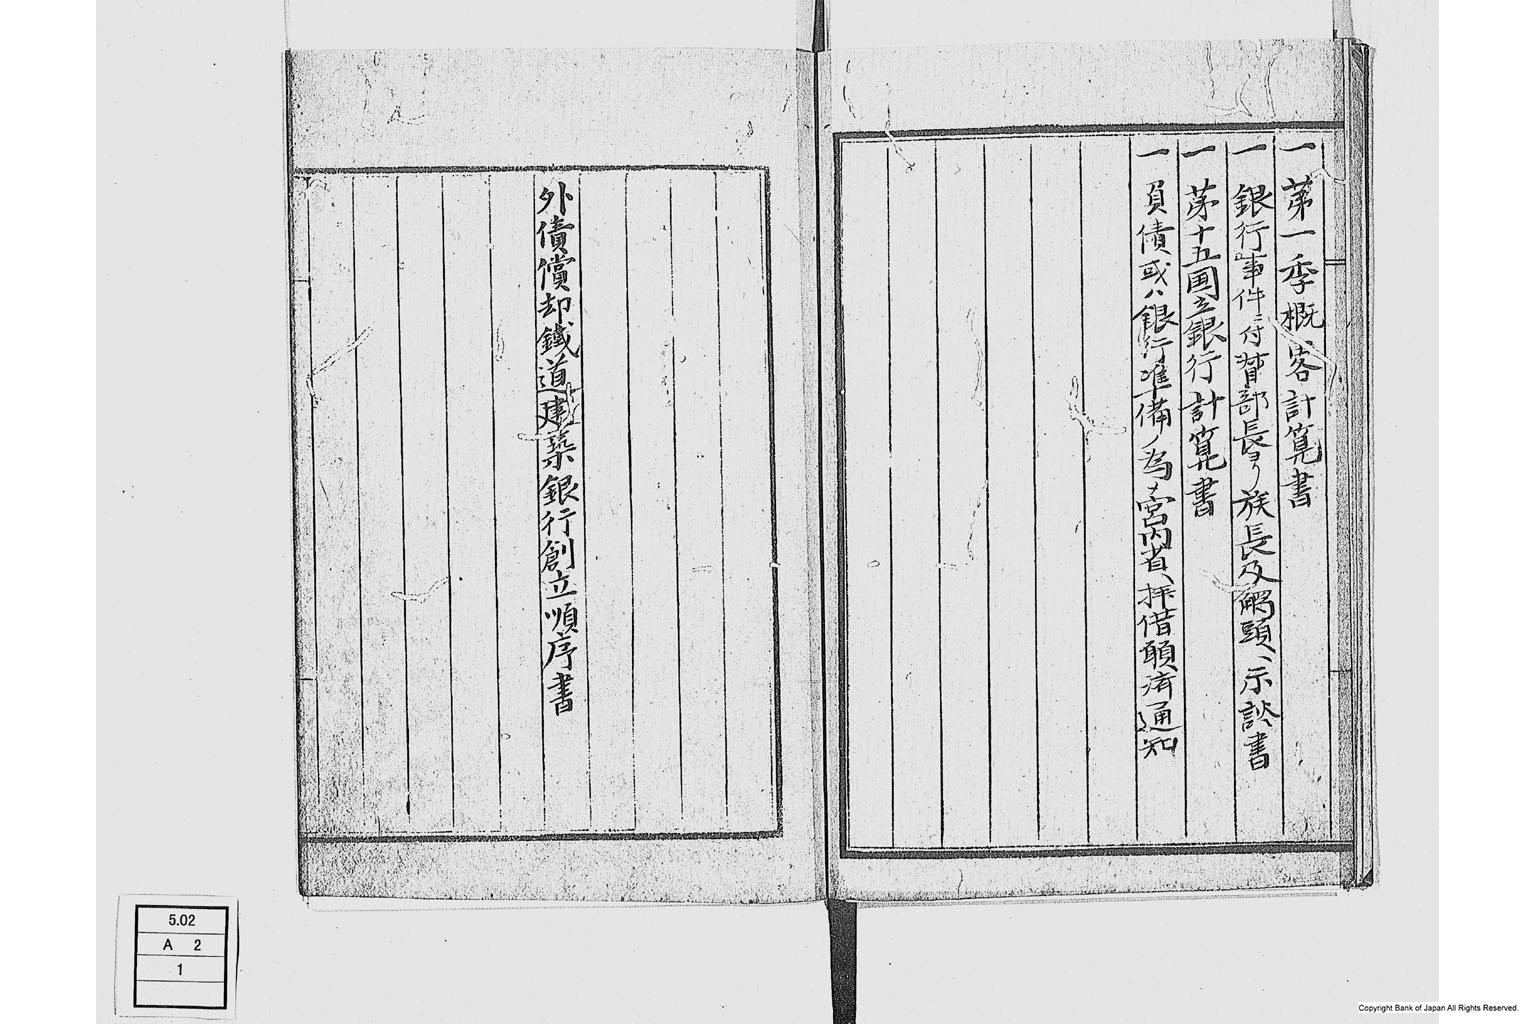 一 第一季概畧計算書
一 銀行事件ニ付督部長ヨリ族長及觸頭ヘ示談書
一 第十五国立銀行計算書
一 負債或ハ銀行準備ノ為メ宮内省ヘ拝借願済通知
外債償却鐵道建築銀行創立順序書
5.02
A 2
1
Copyright Bank of Japan All Rights Reserved.